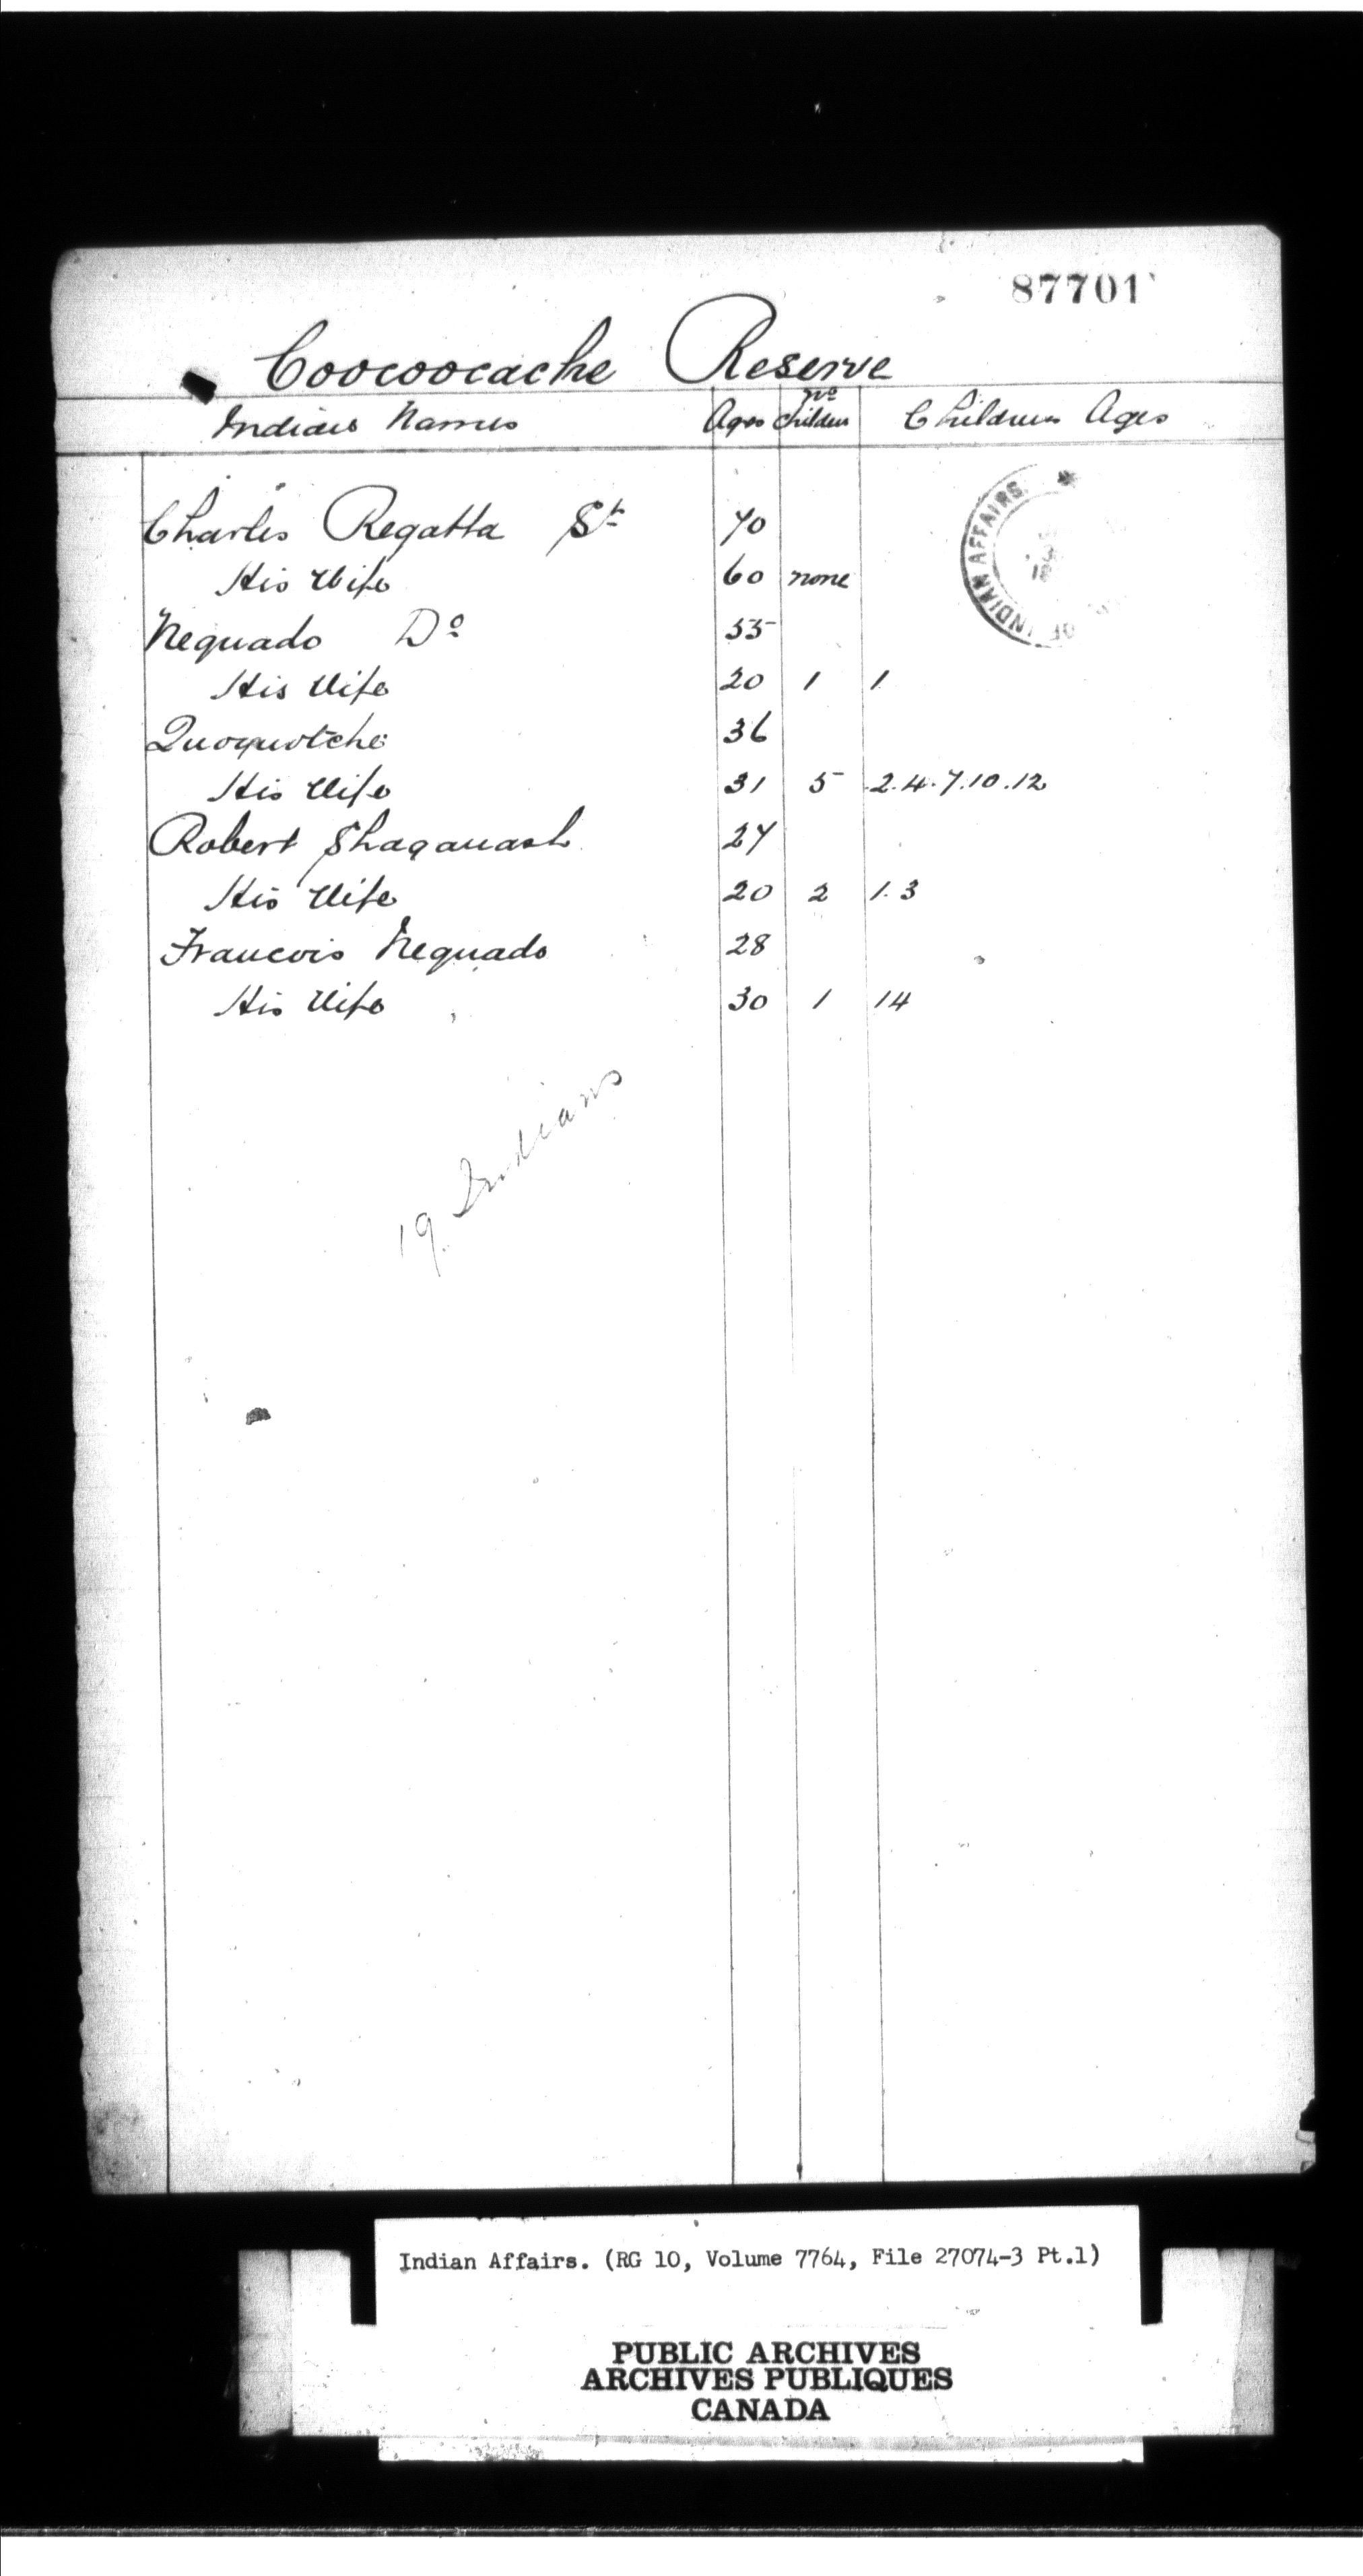 87701
Coocoocache Reserve
Indians Names Ages No Children Childrens Ages
Charles Regatta St 70
His Wife 60 none
Nequado Do 55
His Wife 20 1 1
Quoquotche 36
His Wife 31 5 2.4.7.10.12
Robert Shaganash 27
His Wife 20 2 1.3
Francois Nequado 28
His Wife 30 1 14
19 Indians
OF INDIAN AFFAIRS
Indian Affairs. (RG 10, Volume 7764, File 27074-3 Pt.1)
PUBLIC ARCHIVES
ARCHIVES PUBLIQUES
CANADA